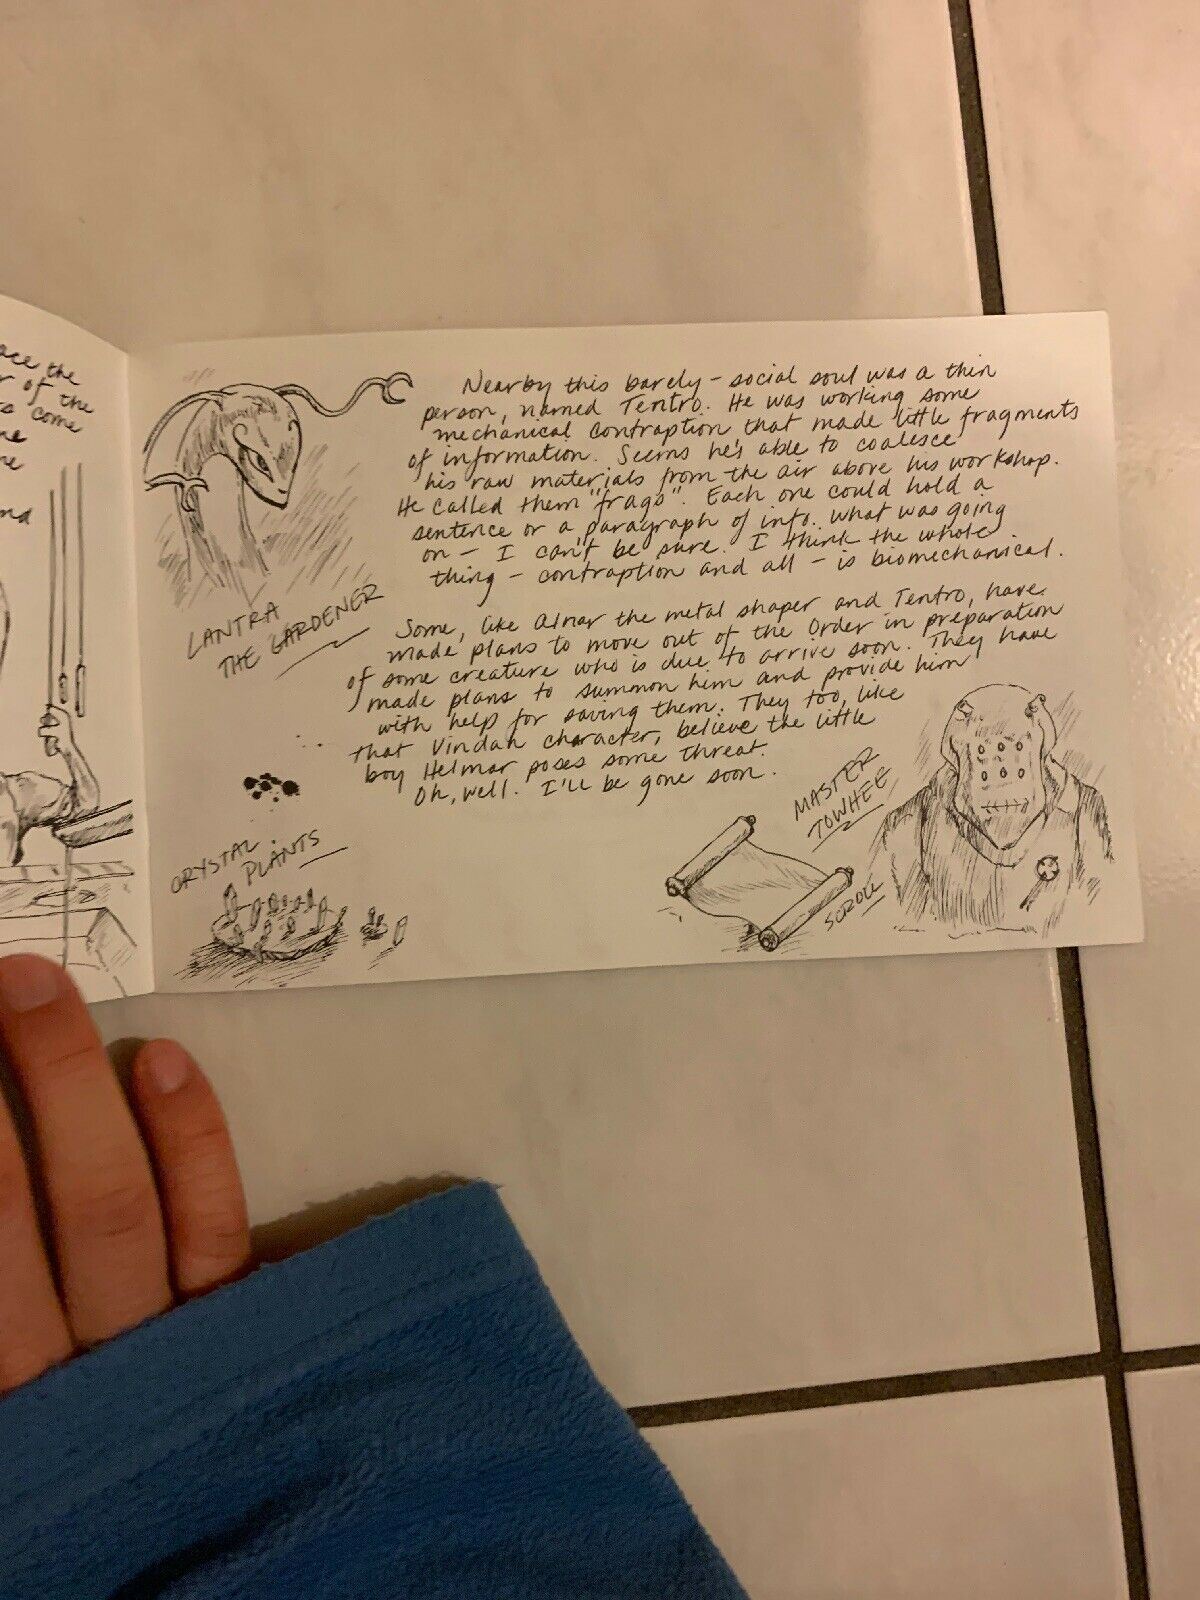 ace the
r of the
s come
ne
ne
nd
Nearby this barely - social soul was a thin
person, named Tentro. He was working some
mechanical contraption that made little fragments
of information. Seems he's able to coalesce
his raw materials from the air above his workshop.
He called them "frags". Each one could hold a
sentence or a paragraph of info. What was going
on - I can't be sure. I think the whole
thing - contraption and all - is biomechanical.
Some, like Almar the metal shaper and Tentro, have
made plans to move out of the Order in preparation
of some creature who is due to arrive soon. They have
made plans to summon him and provide him
with help for saving them. They too, like
that Vindah character, believe the little
boy Helmar poses some threat.
Oh, well. I'll be gone soon.
LANTRA
THE GARDENER
CRYSTAL
PLANTS
MASTER
TOWHEE
SCROLL